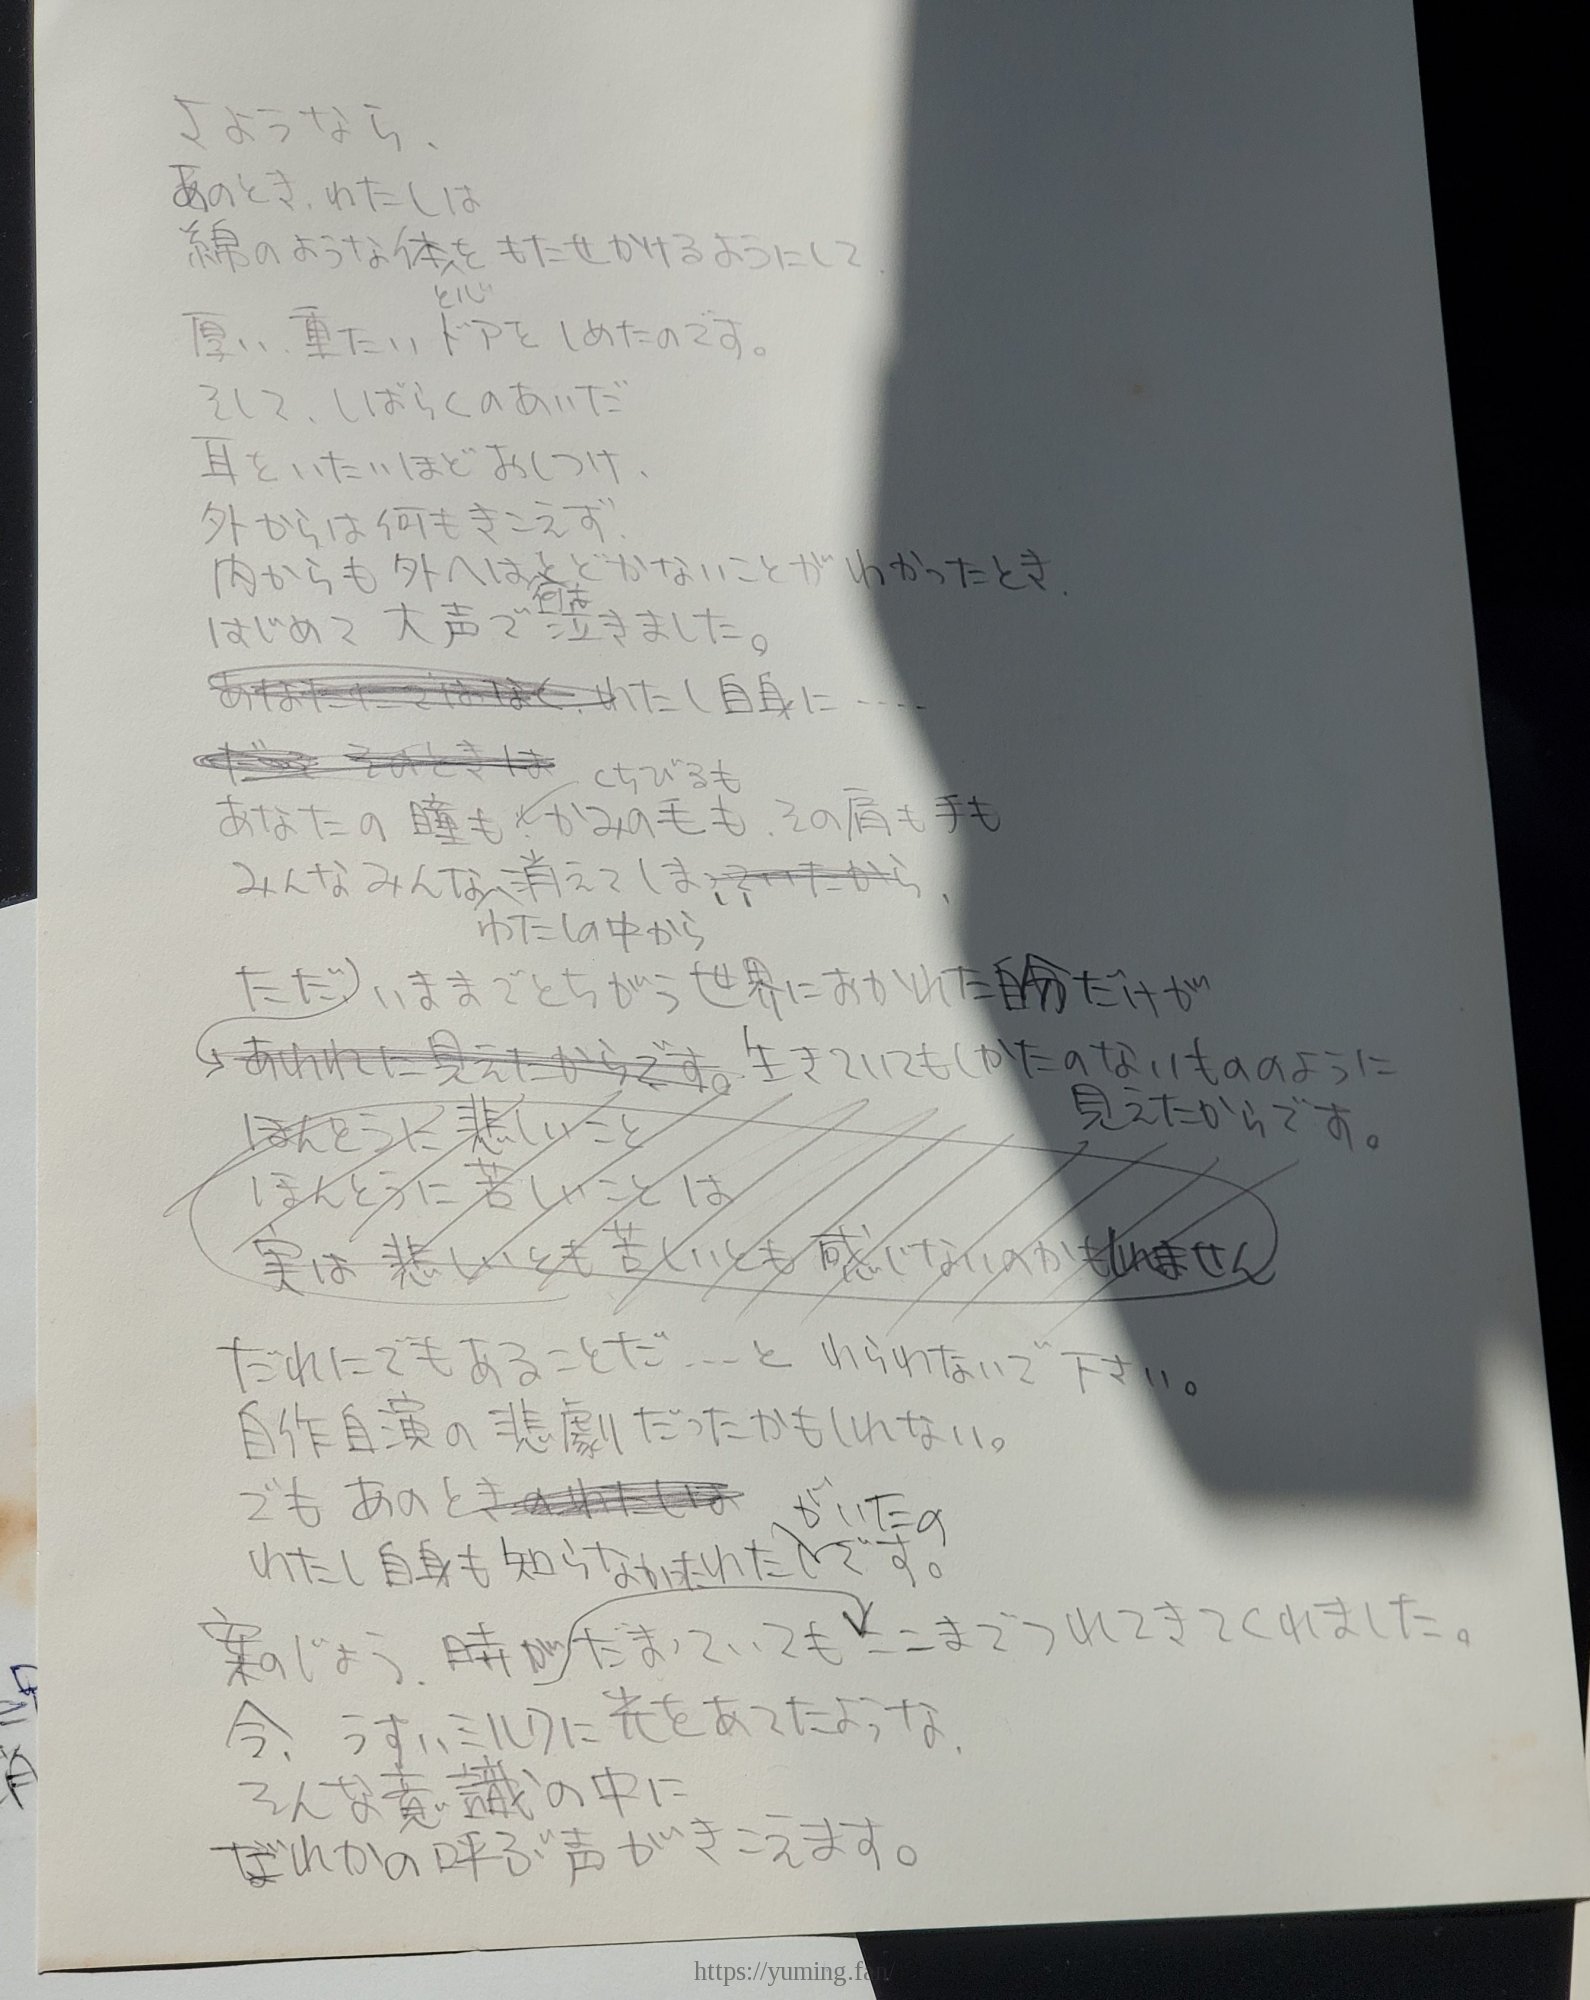 さようなら、
あのとき、わたしは
綿のような体をもたせかけるようにして、
とじ
厚い、重たいドアをしめたのです。
そして、しばらくのあいだ
耳をいたいほどおしつけ、
外からは何もきこえず、
内からも外へはとどかないことがわかったとき、
何も
はじめて大声で泣きました。
あなたたではなく、わたし自身に……
そのときは
くちびるも
あなたの瞳もかみの毛も、その肩も手も
みんなみんな消えてしまっていたから、
わたしの中から
ただ、いままでとちがう世界におかれた自分だけが
あわれに見えたからです。生きていてもしかたのないもののように
見えたからです。
ほんとうに悲しいこと
ほんとうに苦しいことは
実は悲しいとも苦しいとも感じないのかもしれません
だれにでもあることだ……と わらわないで下さい。
自作自演の悲劇だったかもしれない。
でもあのときのわたしは
がいたの
わたし自身も知らなかったわたしです。
案のじょう、時がだまっていてもここまでつれてきてくれました。
今、うすいミルクに光をあてたような、
そんな意識の中に
だれかの呼ぶ声がきこえます。
https://yuming.fan/